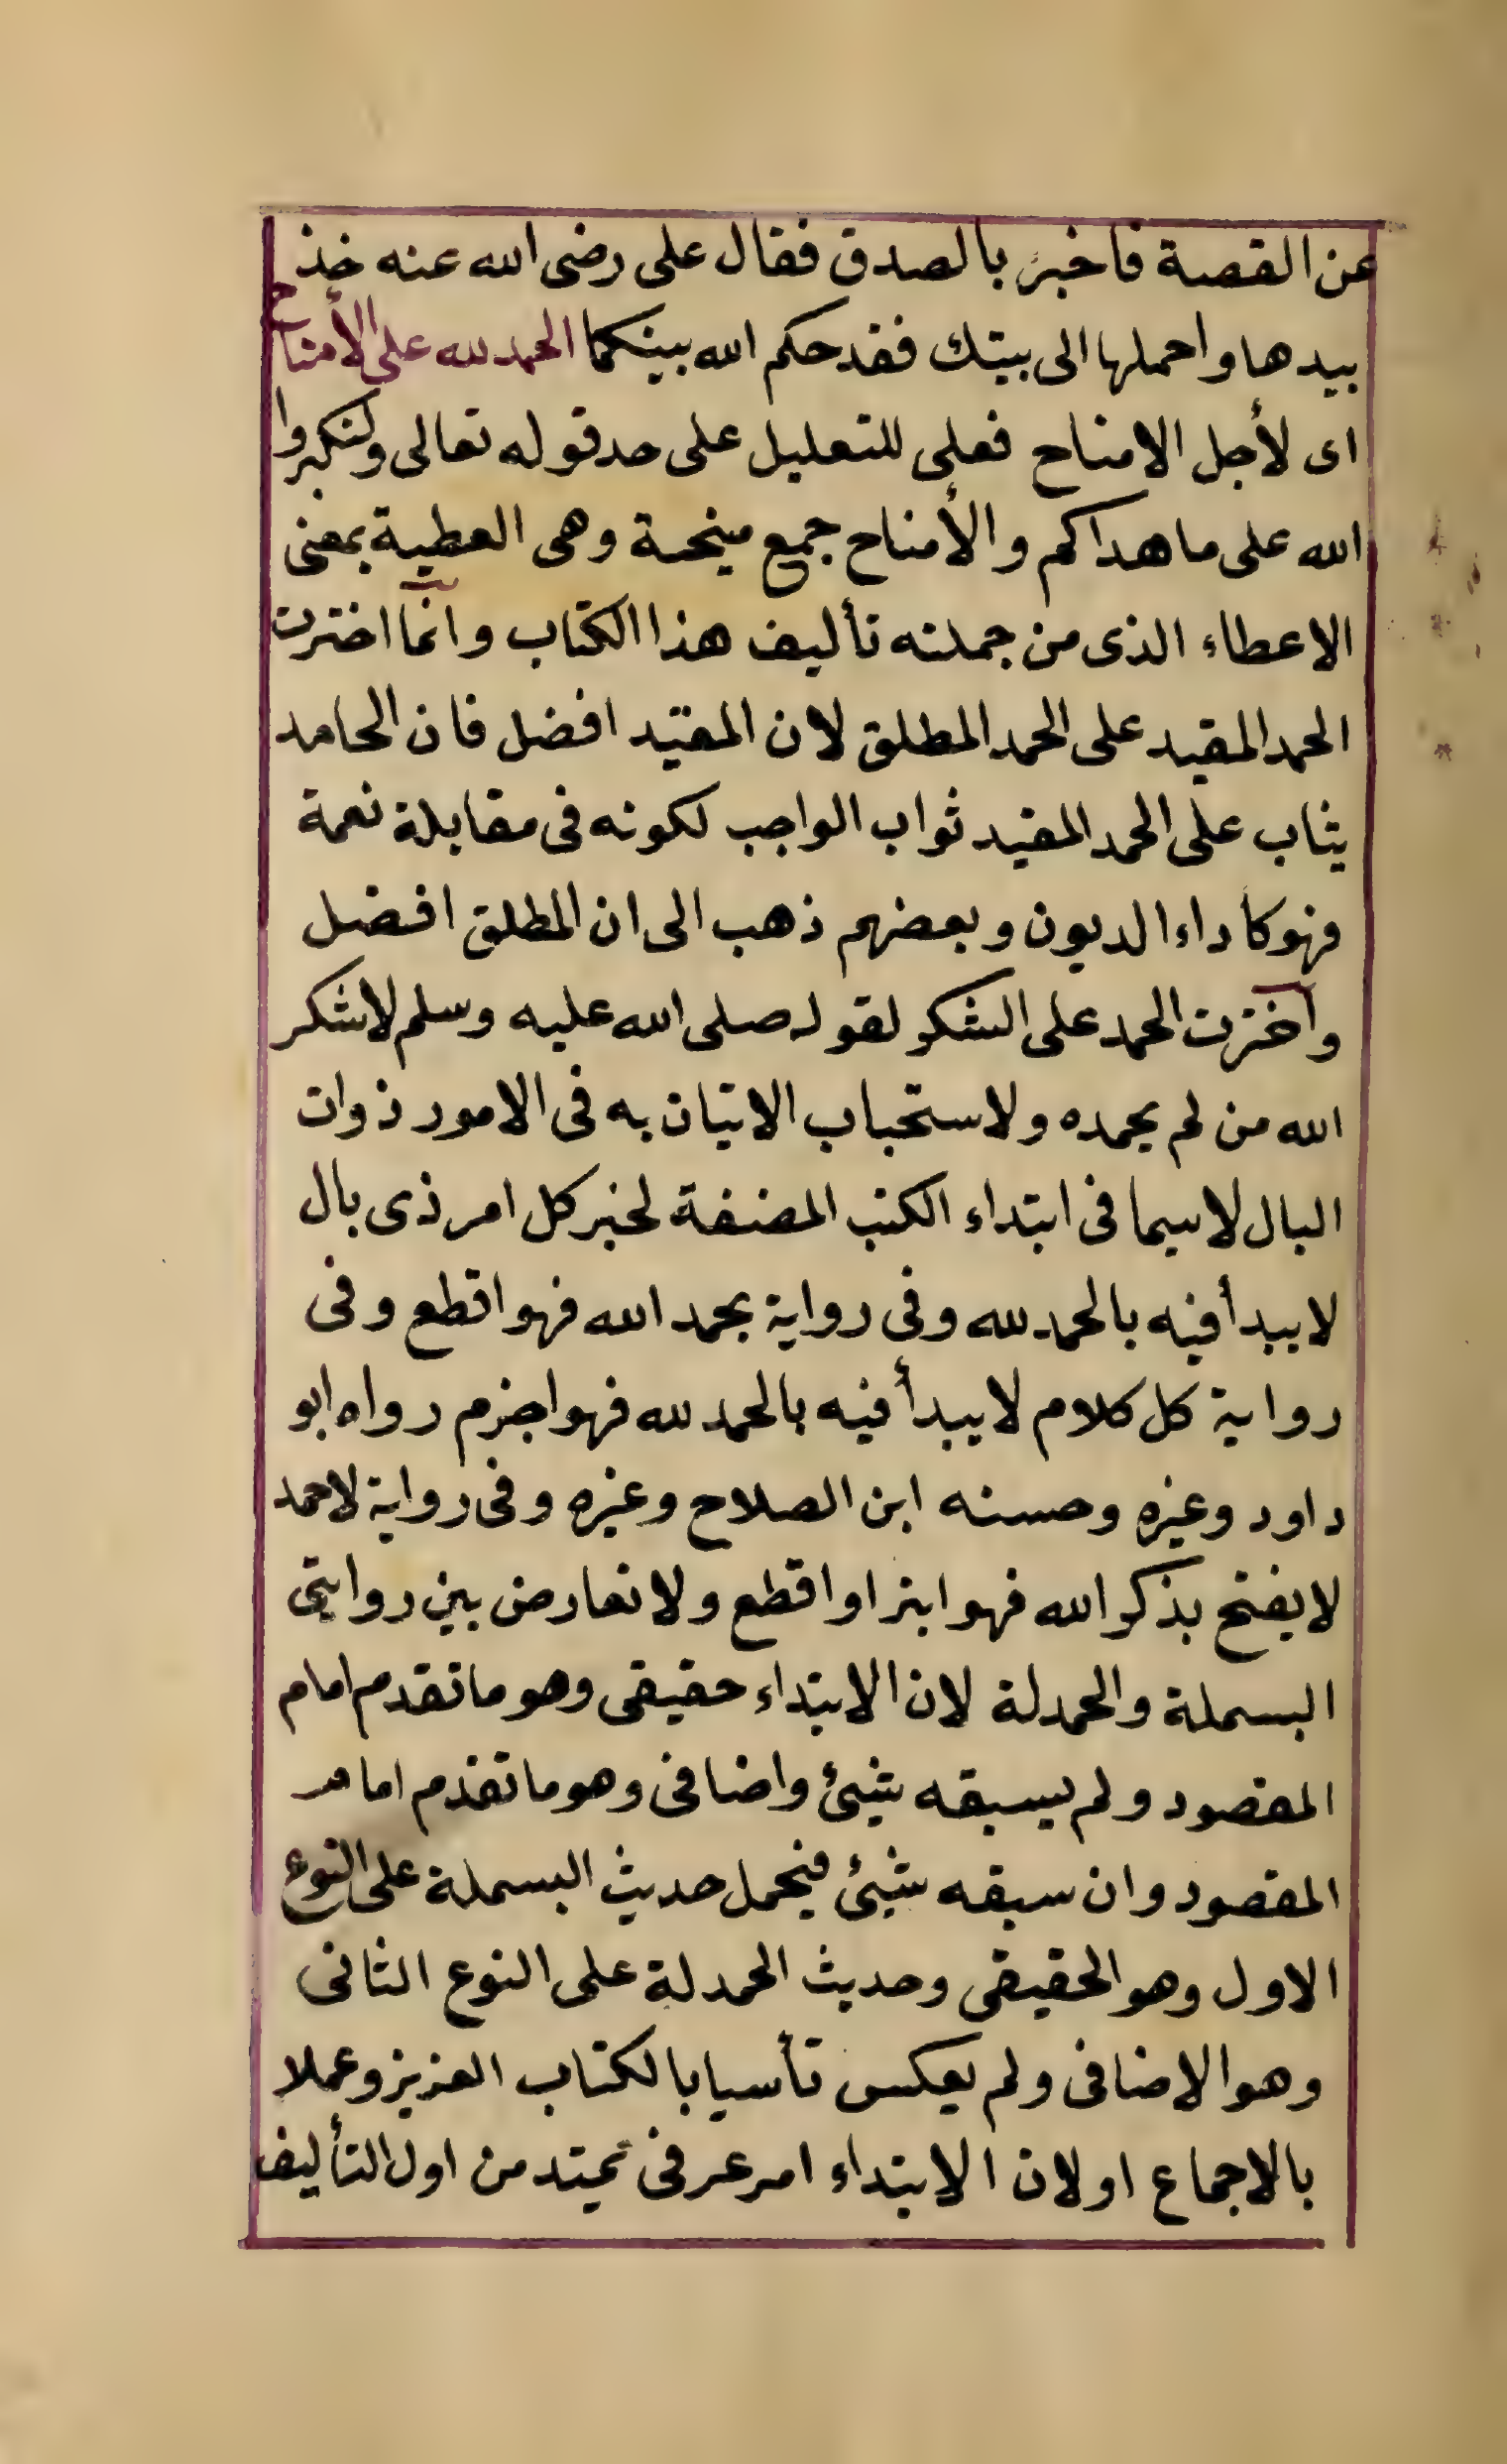 عن القصة فاخبر بالصدق فقال على رضى الله عنه خذ
بيدها واحملها الى بيتك فقد حكم الله بينكما الحمد لله على الأمتاح
اى لأجل الامناح فعلى للتعليل على حد قوله تعالى ولتكبروا
الله على ما هداكم والأمناح جمع مينحة وهى العطية بمعنى
الاعطاء الذى من جملته تأليف هذا الكتاب وانما اخترت
الحمد المقيد على الحمد المطلق لان المقيد افضل فان الحامد
يثاب على الحمد المقيد ثواب الواجب لكونه فى مقابلة نعمة
فهو كأداء الديون وبعضهم ذهب الى ان المطلق افضل
وآخترت الحمد على الشكر لقوله صلى الله عليه وسلم لا شكر
الله من لم يحمده ولاستحباب الاتيان به فى الامور ذوات
البال لاسيما فى ابتداء الكتب المصنفة لخبر كل امر ذى بال
لا يبدأ فيه بالحمد لله وفى رواية بحمد الله فهو اقطع وفى
رواية كل كلام لا يبدأ فيه بالحمد لله فهو اجزم رواه ابو
داود وغيره وحسنه ابن الصلاح وغيره وفى رواية لاحمد
لا يفتح بذكر الله فهو ابتر او اقطع ولا تعارض بين روايتى
البسملة والحمدلة لان الابتداء حقيقى وهو ما تقدم امام
المقصود ولم يسبقه شيئ واضافى وهو ما تقدم امام
المقصود وان سبقه شيئ فيحمل حديث البسملة على النوع
الاول وهو الحقيقى وحديث الحمدلة على النوع الثانى
وهو الاضافى ولم يعكس تأسيا بالكتاب العزيز وعملا
بالاجماع او لان الابتداء امر عرفى يمتد من اول التأليف